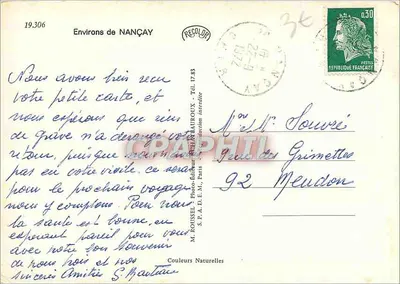 19.306
Environs de NANÇAY
RECOLOR
3€
0,30
POSTES
REPUBLIQUE FRANÇAISE
NANÇAY
Nous avons bien reçu
votre petite carte, et
nous espérons que rien
de grave n'a dérangé votre
retour, puisque
pas eu votre visite, ce sera
pour le prochain voyage
nous y comptons. Pour nous
la santé est bonne, en
espérant pareil pour vous
avec notre bon souvenir
de nous trois et nos
sincères Amitiés G.
CPAPHIL
M. ROUSSEL - Photos CHATEAUROUX - Tél. 17.83
S.P.A.D.E.M., Paris interdite
Mr et Me Souvré
Rue des Grimettes
92 Meudon
Couleurs Naturelles